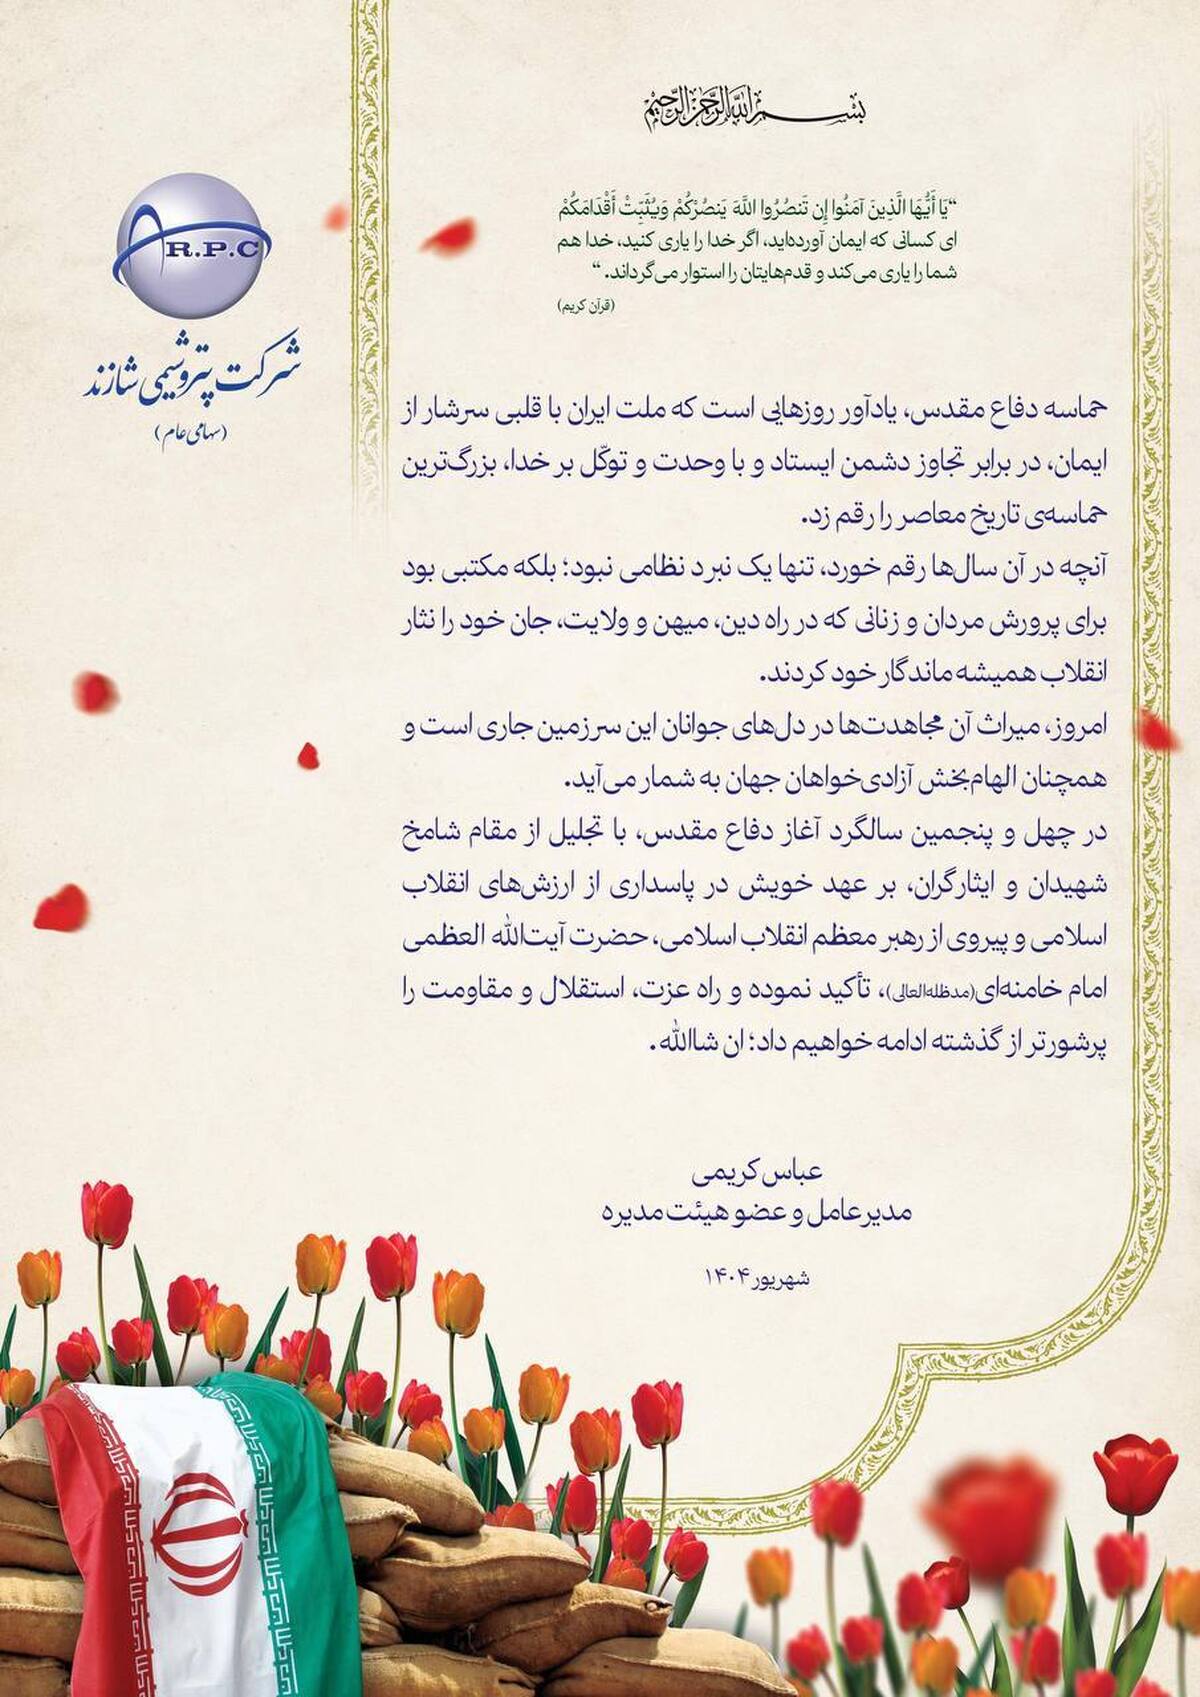 بسم الله الرحمن الرحیم
“یَا أَیُّهَا الَّذِینَ آمَنُوا إِن تَنصُرُوا اللَّهَ یَنصُرْکُمْ وَیُثَبِّتْ أَقْدَامَکُمْ
ای کسانی که ایمان آورده‌اید، اگر خدا را یاری کنید، خدا هم
شما را یاری می‌کند و قدم‌هایتان را استوار می‌گرداند. “
(قرآن کریم)
A R.P.C
شرکت پتروشیمی شازند
(سهامی عام)
حماسه دفاع مقدس، یادآور روزهایی است که ملت ایران با قلبی سرشار از
ایمان، در برابر تجاوز دشمن ایستاد و با وحدت و توکّل بر خدا، بزرگ‌ترین
حماسه‌ی تاریخ معاصر را رقم زد.
آنچه در آن سال‌ها رقم خورد، تنها یک نبرد نظامی نبود؛ بلکه مکتبی بود
برای پرورش مردان و زنانی که در راه دین، میهن و ولایت، جان خود را نثار
انقلاب همیشه ماندگار خود کردند.
امروز، میراث آن مجاهدت‌ها در دل‌های جوانان این سرزمین جاری است و
همچنان الهام‌بخش آزادی‌خواهان جهان به شمار می‌آید.
در چهل و پنجمین سالگرد آغاز دفاع مقدس، با تجلیل از مقام شامخ
شهیدان و ایثارگران، بر عهد خویش در پاسداری از ارزش‌های انقلاب
اسلامی و پیروی از رهبر معظم انقلاب اسلامی، حضرت آیت‌الله العظمی
امام خامنه‌ای(مدظله‌العالی)، تأکید نموده و راه عزت، استقلال و مقاومت را
پرشورتر از گذشته ادامه خواهیم داد؛ ان شاالله.
عباس کریمی
مدیرعامل و عضو هیئت مدیره
شهریور ۱۴۰۴